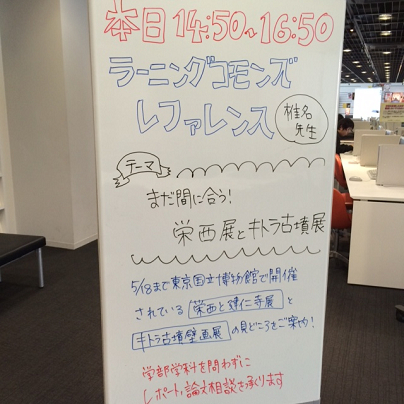 本日 14:50~16:50
ラーニングコモンズ
レファレンス
椎名
先生
テーマ
まだ間に合う!
栄西展とキトラ古墳展
5/18まで東京国立博物館で開催
されている 栄西と建仁寺展 と
キトラ古墳壁画展 の見どころをご案内!
学部学科を問わずに
レポート、論文相談を承ります